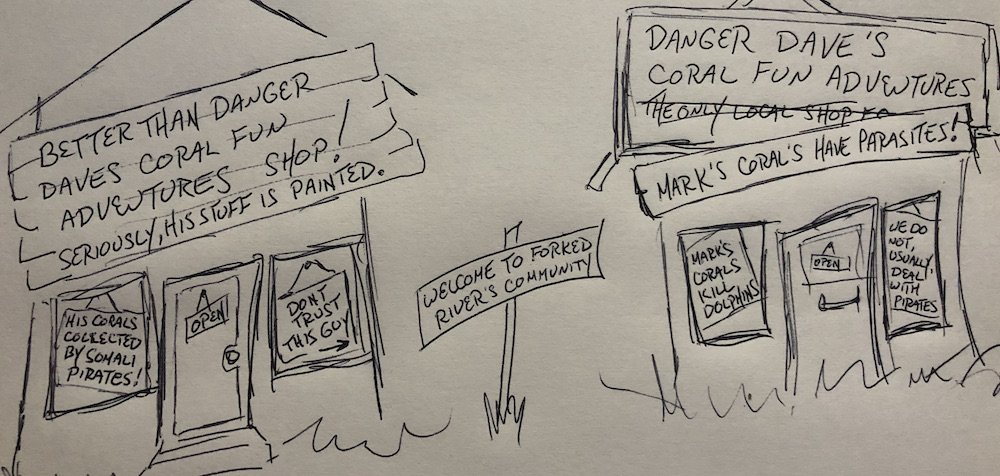 BETTER THAN DANGER
DAVES CORAL FUN
ADVENTURES SHOP!
SERIOUSLY, HIS STUFF IS PAINTED.
HIS CORALS
COLLECTED
BY SOMALI
PIRATES!
OPEN
DON'T
TRUST
THIS GUY
WELCOME TO FORKED
RIVER'S COMMUNITY
DANGER DAVE'S
CORAL FUN ADVENTURES
THE ONLY LOCAL SHOP
MARK'S CORAL'S HAVE PARASITES!
MARK'S
CORALS
KILL
DOLPHINS
OPEN
WE DO
NOT,
USUALLY,
DEAL
WITH
PIRATES